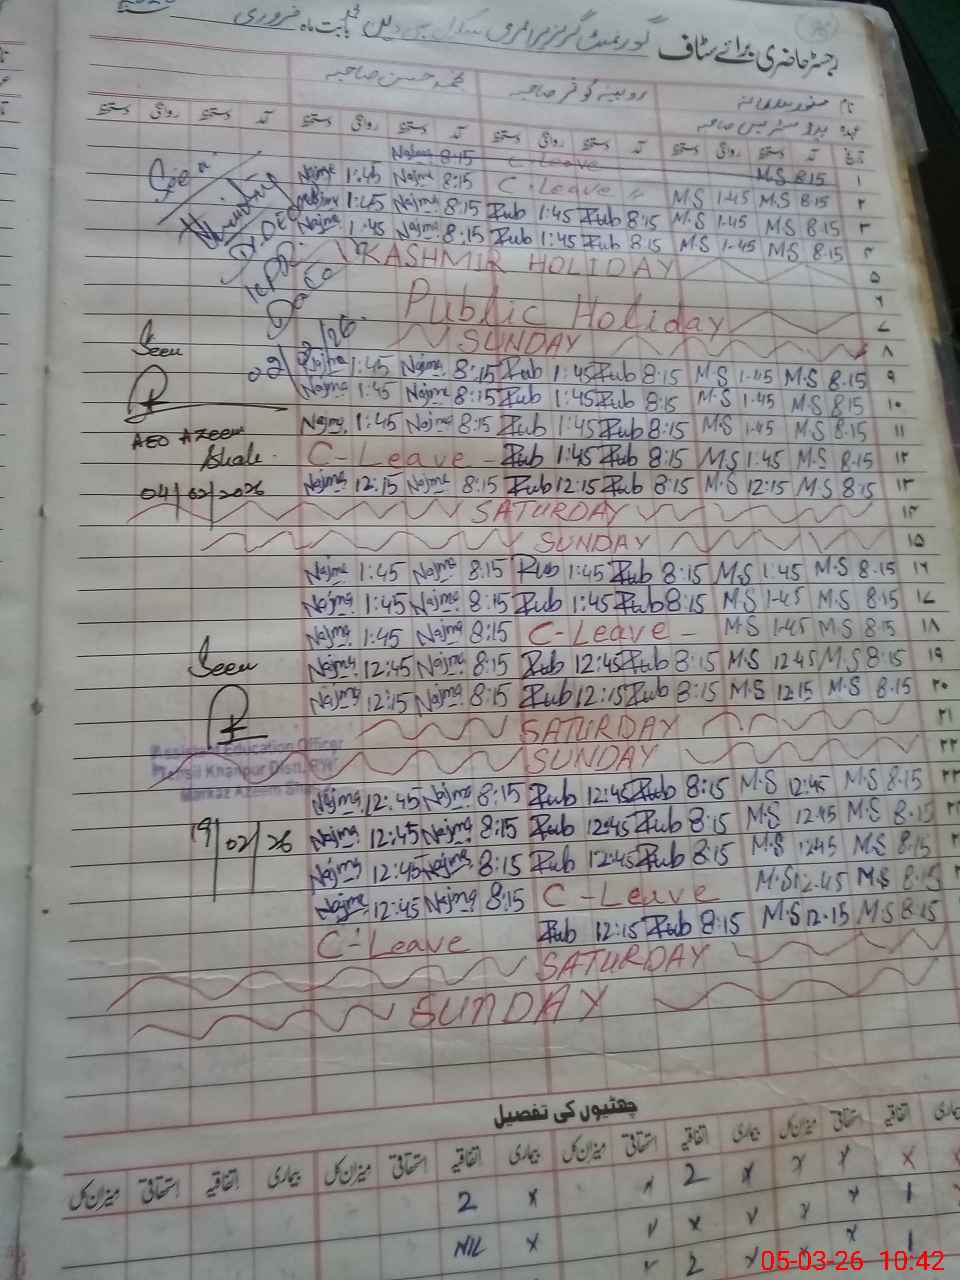 رجسٹر حاضری برائے سٹاف گورنمنٹ گرلز پرائمری سکول بابت ماہ فروری
نام روبینہ کوثر صاحبہ نجمہ حسن صاحبہ
عہدہ ہیڈ مسٹریس صاحبہ
تاریخ آمد دستخط روانگی دستخط آمد دستخط روانگی دستخط آمد دستخط روانگی دستخط آمد دستخط روانگی دستخط
۱ M.S 8:15 C-Leave Najma 8:15
۲ M.S 1-45 M.S 8:15 C-Leave " Najma 1:45 Najma 8:15
۳ Najma 1:45 Najma 8:15 Rub 1:45 Rub 8:15 M.S 1-45 M.S 8:15
۴ Najma 1:45 Najma 8:15 Rub 1:45 Rub 8:15 M.S 1-45 M.S 8:15
۵ KASHMIR HOLIDAY
۶ Public Holiday
۷
۸ SUNDAY
Seen
۹ Najma 1:45 Najma 8:15 Rub 1:45 Rub 8:15 M.S 1-45 M.S 8.15
۱۰ Najma 1:45 Najma 8:15 Rub 1:45 Rub 8:15 M.S 1-45 M.S 8:15
۱۱ Najma 1:45 Najma 8:15 Rub 1:45 Rub 8:15 M.S 1-45 M.S 8:15
AEO Azeem Shah
۱۲ C-Leave - Rub 1:45 Rub 8:15 M.S 1:45 M.S 8.15
۱۳ Najma 12:15 Najma 8:15 Rub 12:15 Rub 8:15 M.S 12:15 M.S 8:15
04/02/2026
۱۴ SATURDAY
۱۵ SUNDAY
۱۶ Najma 1:45 Najma 8:15 Rub 1:45 Rub 8:15 M.S 1:45 M.S 8.15
۱۷ Najma 1:45 Najma 8:15 Rub 1:45 Rub 8:15 M.S 1-45 M.S 8:15
۱۸ Najma 1:45 Najma 8:15 C-Leave - M.S 1-45 M.S 8:15
Seen
۱۹ Najma 12:45 Najma 8:15 Rub 12:45 Rub 8:15 M.S 12:45 M.S 8:15
۲۰ Najma 12:15 Najma 8:15 Rub 12:15 Rub 8:15 M.S 12:15 M.S 8.15
۲۱ SATURDAY
۲۲ SUNDAY
Assistant Education Officer
Tehsil Khanpur Distt. RYK
Markaz Azeem Shah
۲۳ Najma 12:45 Najma 8:15 Rub 12:45 Rub 8:15 M.S 12:45 M.S 8.15
19/02/26
Najma 12:45 Najma 8:15 Rub 12:45 Rub 8:15 M.S 12.45 M.S 8.15
Najma 12:45 Najma 8:15 Rub 12:45 Rub 8:15 M.S 12:45 M.S 8.15
Najma 12:45 Najma 8:15 C-Leave M.S 12-45 M.S 8:15
C-Leave Rub 12:15 Rub 8:15 M.S 12.15 M.S 8:15
SATURDAY
SUNDAY
چھٹیوں کی تفصیل
بیماری اتفاقیہ استحقاقی میزان کل بیماری اتفاقیہ استحقاقی میزان کل بیماری اتفاقیہ استحقاقی میزان کل بیماری اتفاقیہ استحقاقی میزان کل
x x x x 2 x 2 x
1 x x NIL x
1 2
05-03-26 10:42